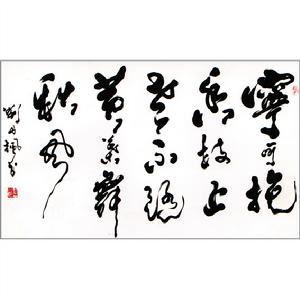 寧可抱
香枝上
老不隨
黃葉舞
秋風